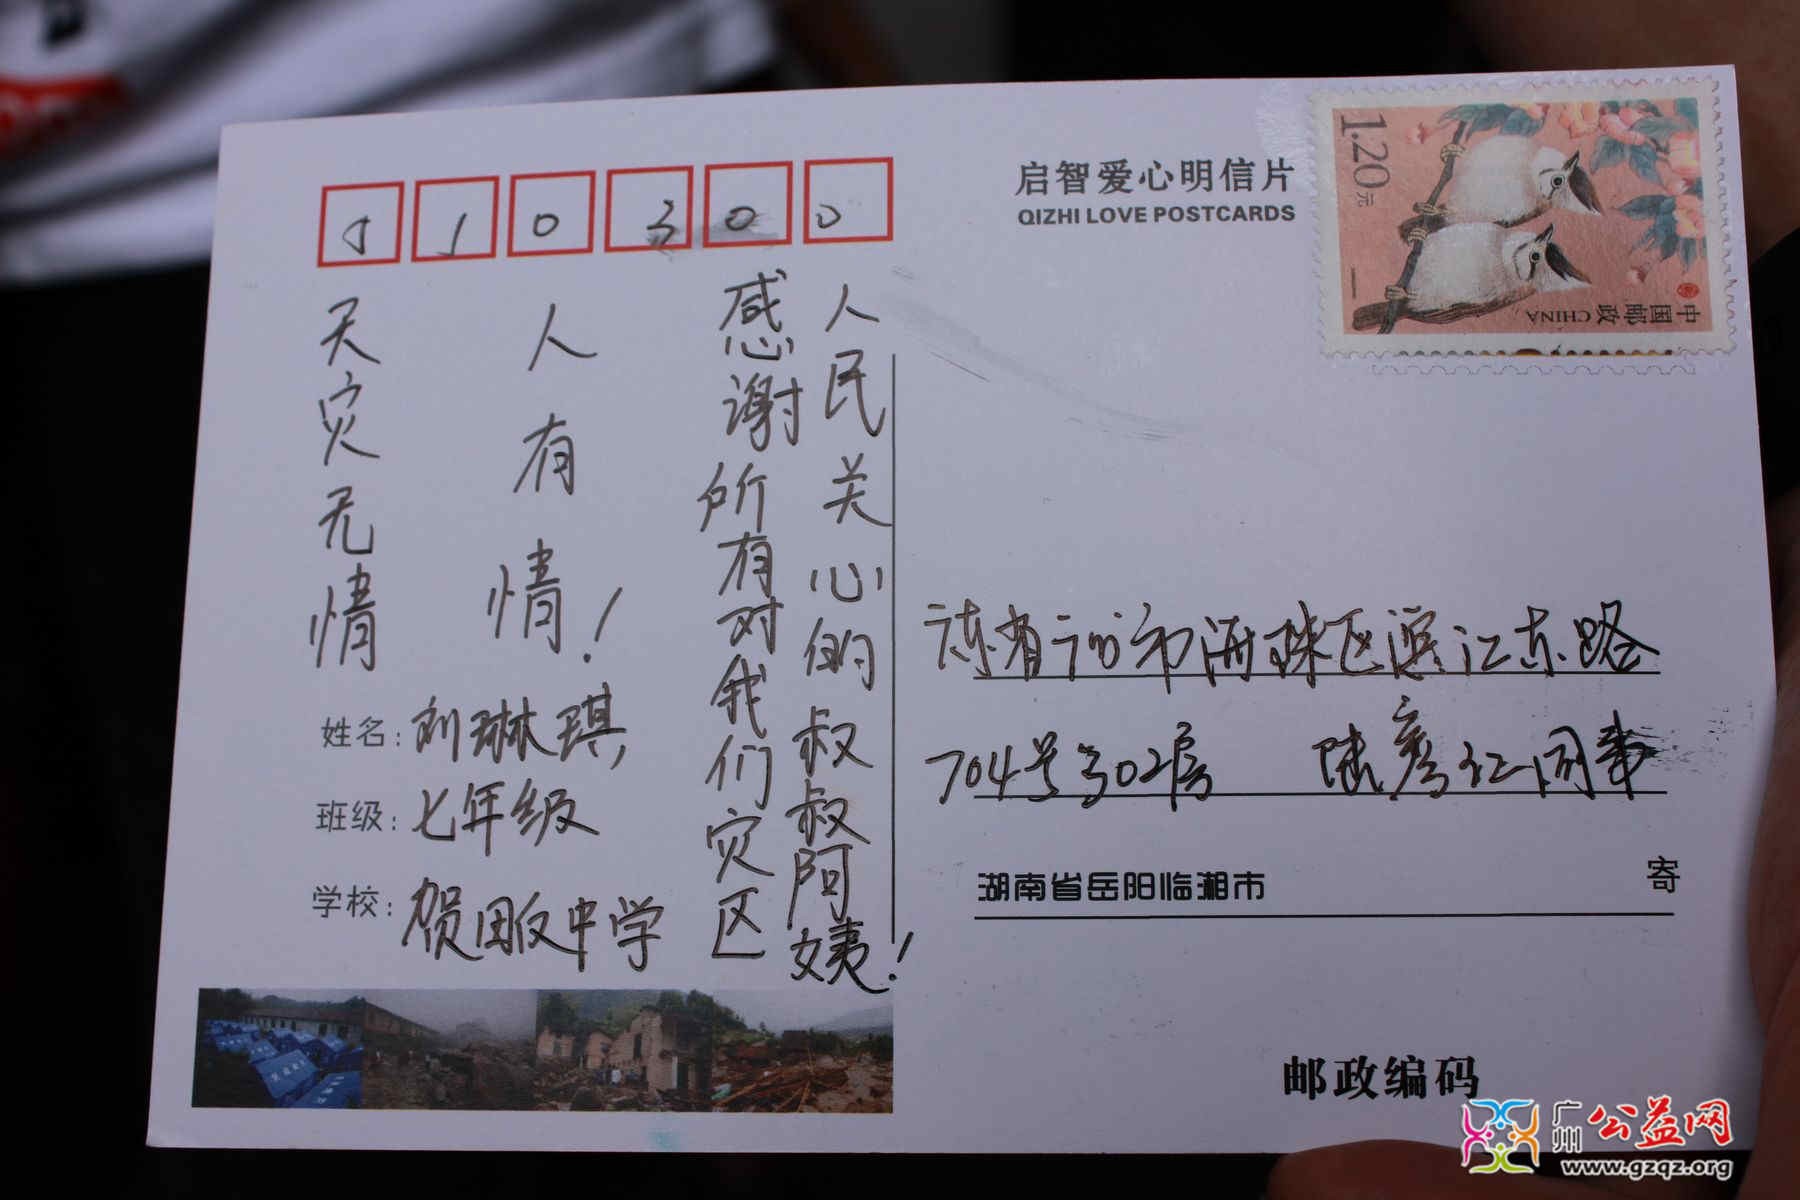 510300
启智爱心明信片
QIZHI LOVE POSTCARDS
1.20元
中国邮政 CHINA
天灾无情
人有情!
感谢所有对我们灾区
人民关心的叔叔阿姨!
姓名: 刘琳琪
班级: 七年级
学校: 贺畈中学
东省 市海珠区滨江东路
704号302房 陆彦红同事
湖南省岳阳临湘市 寄
邮政编码
广州公益网
www.gzqz.org